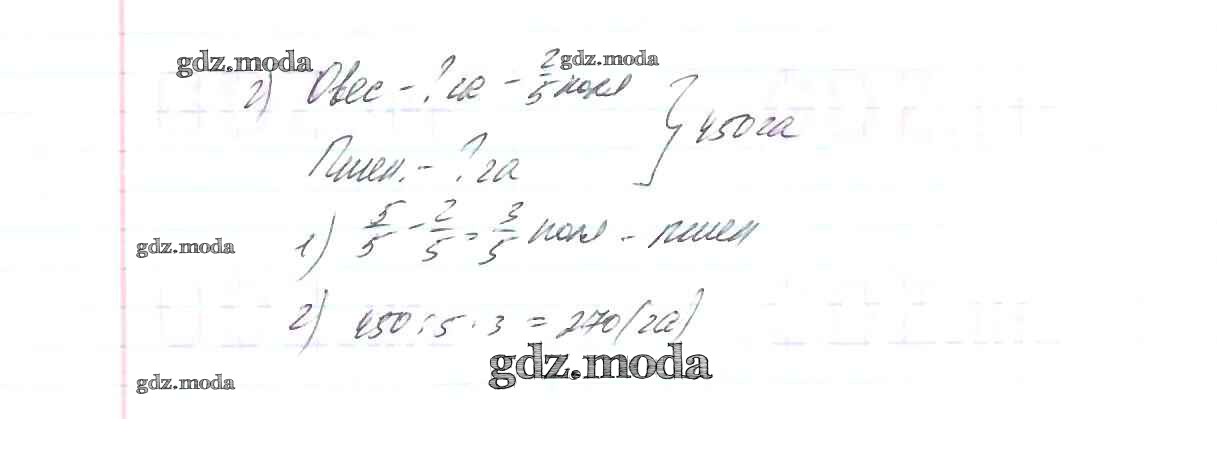 gdz.moda gdz.moda
2) Овес - ? га - 2/5 поля
Пшен. - ? га } 450 га
gdz.moda
1) 5/5 - 2/5 = 3/5 поля - пшен
2) 450 : 5 · 3 = 270 (га)
gdz.moda
gdz.moda